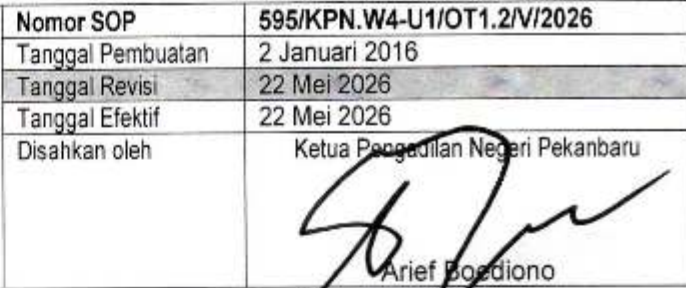 Nomor SOP 595/KPN.W4-U1/OT1.2/V/2026
Tanggal Pembuatan 2 Januari 2016
Tanggal Revisi 22 Mei 2026
Tanggal Efektif 22 Mei 2026
Disahkan oleh Ketua Pengadilan Negeri Pekanbaru
Arief Boediono